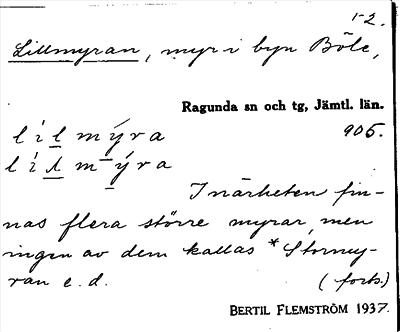 1-2.
Lillmyran, myr i byn Böle,
Ragunda sn och tg, Jämtl. län.
905.
I närheten fin-
nas flera större myrar, men
ingen av dem kallas *Stormy-
ran e.d. (forts.)
BERTIL FLEMSTRÖM 1937.